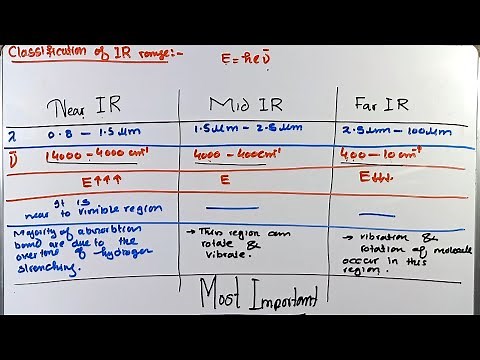 Classification of IR range:-
E = hc ν̄
Near IR
Mid IR
Far IR
λ
0.8 - 1.5 μm
1.5 μm - 2.5 μm
2.5 μm - 100 μm
ν̄
14000 - 4000 cm⁻¹
4000 - 400 cm⁻¹
400 - 10 cm⁻¹
E↑↑↑
E
E↓↓↓
It is
near to visible region
Majority of absorbtion
band are due to the
overtone of hydrogen
strenching.
→ This region can
rotate &
vibrate.
→ vibration &
rotation of molecule
occur in this
region.
Most Important